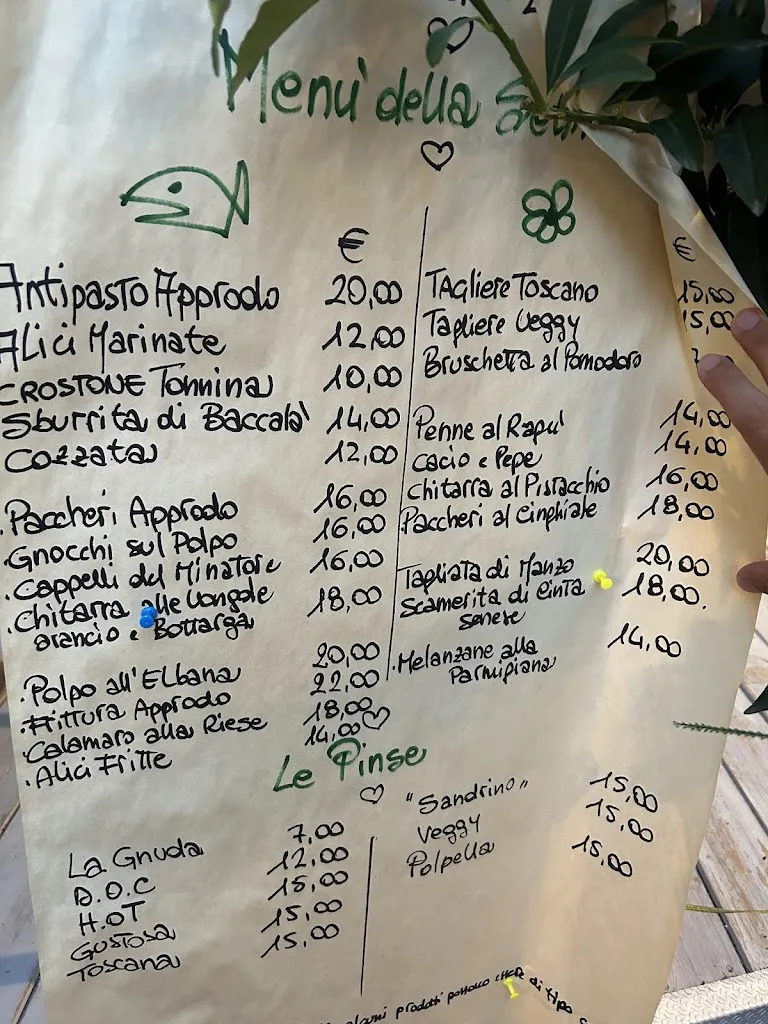 Menù della
€
Antipasto Approdo 20,00
Alici Marinate 12,00
CROSTONE Tonnina 10,00
Sburrita di Baccala' 14,00
Cozzata 12,00
.Paccheri Approdo 16,00
.Gnocchi sul Polpo 16,00
.Cappelli del Minatore 16,00
.Chitarra alle Vongole 18,00
arancio e Bottarga
.Polpo all'Elbana 20,00
.Frittura Approdo 22,00
.Calamaro alla Riese 18,00
.Alici Fritte 14,00
€
TAgliere Toscano 15,00
Tagliere Veggy 15,00
Bruschetta al Pomodoro 7
Penne al Rapu' 14,00
cacio e Pepe 14,00
chitarra al Pistacchio 16,00
Paccheri al Cinghiale 18,00
Tagliata di Manzo 20,00
Scamerita di Cinta 18,00.
senese
.Melanzane alla 14,00
Parmipiana
Le Pinse
La Gnuda 7,00
D.O.C 12,00
H.OT 15,00
Gustosa 15,00
Toscana 15,00
"Sandrino" 15,00
Veggy 15,00
Polpella 15,00
alcuni prodotti possono essere di tipo